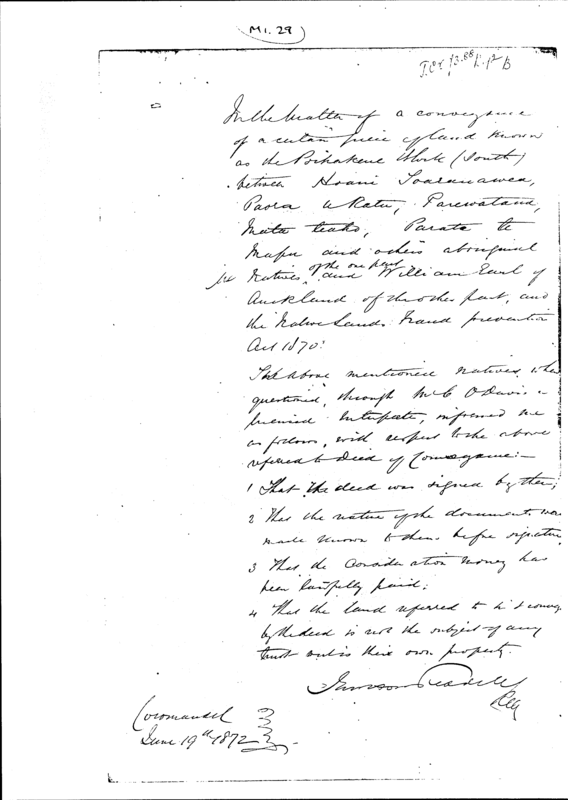 M1. 29
In the Matter of a conveyance
of a certain piece of land known
as the Poihakene Block (South)
between Hoani
Paora
Mata Parata te
and others aboriginal
Natives of the one part and William Earl of
Auckland of the other part, and
the Native Lands Fraud prevention
Act 1870:
The above mentioned Natives, when
questioned, through Mr C O Davis a
licensed Interpreter, informed me
as follows, with respect to the above
referred to Deed of Conveyance:—
1 That the deed was signed by them;
2 That the nature of the document was
made known to them before signature
3 That the Consideration money has
been lawfully paid;
4 That the land referred to
by the deed is not the subject of any
trust but is their own property.
Coromandel
June 19th 1872